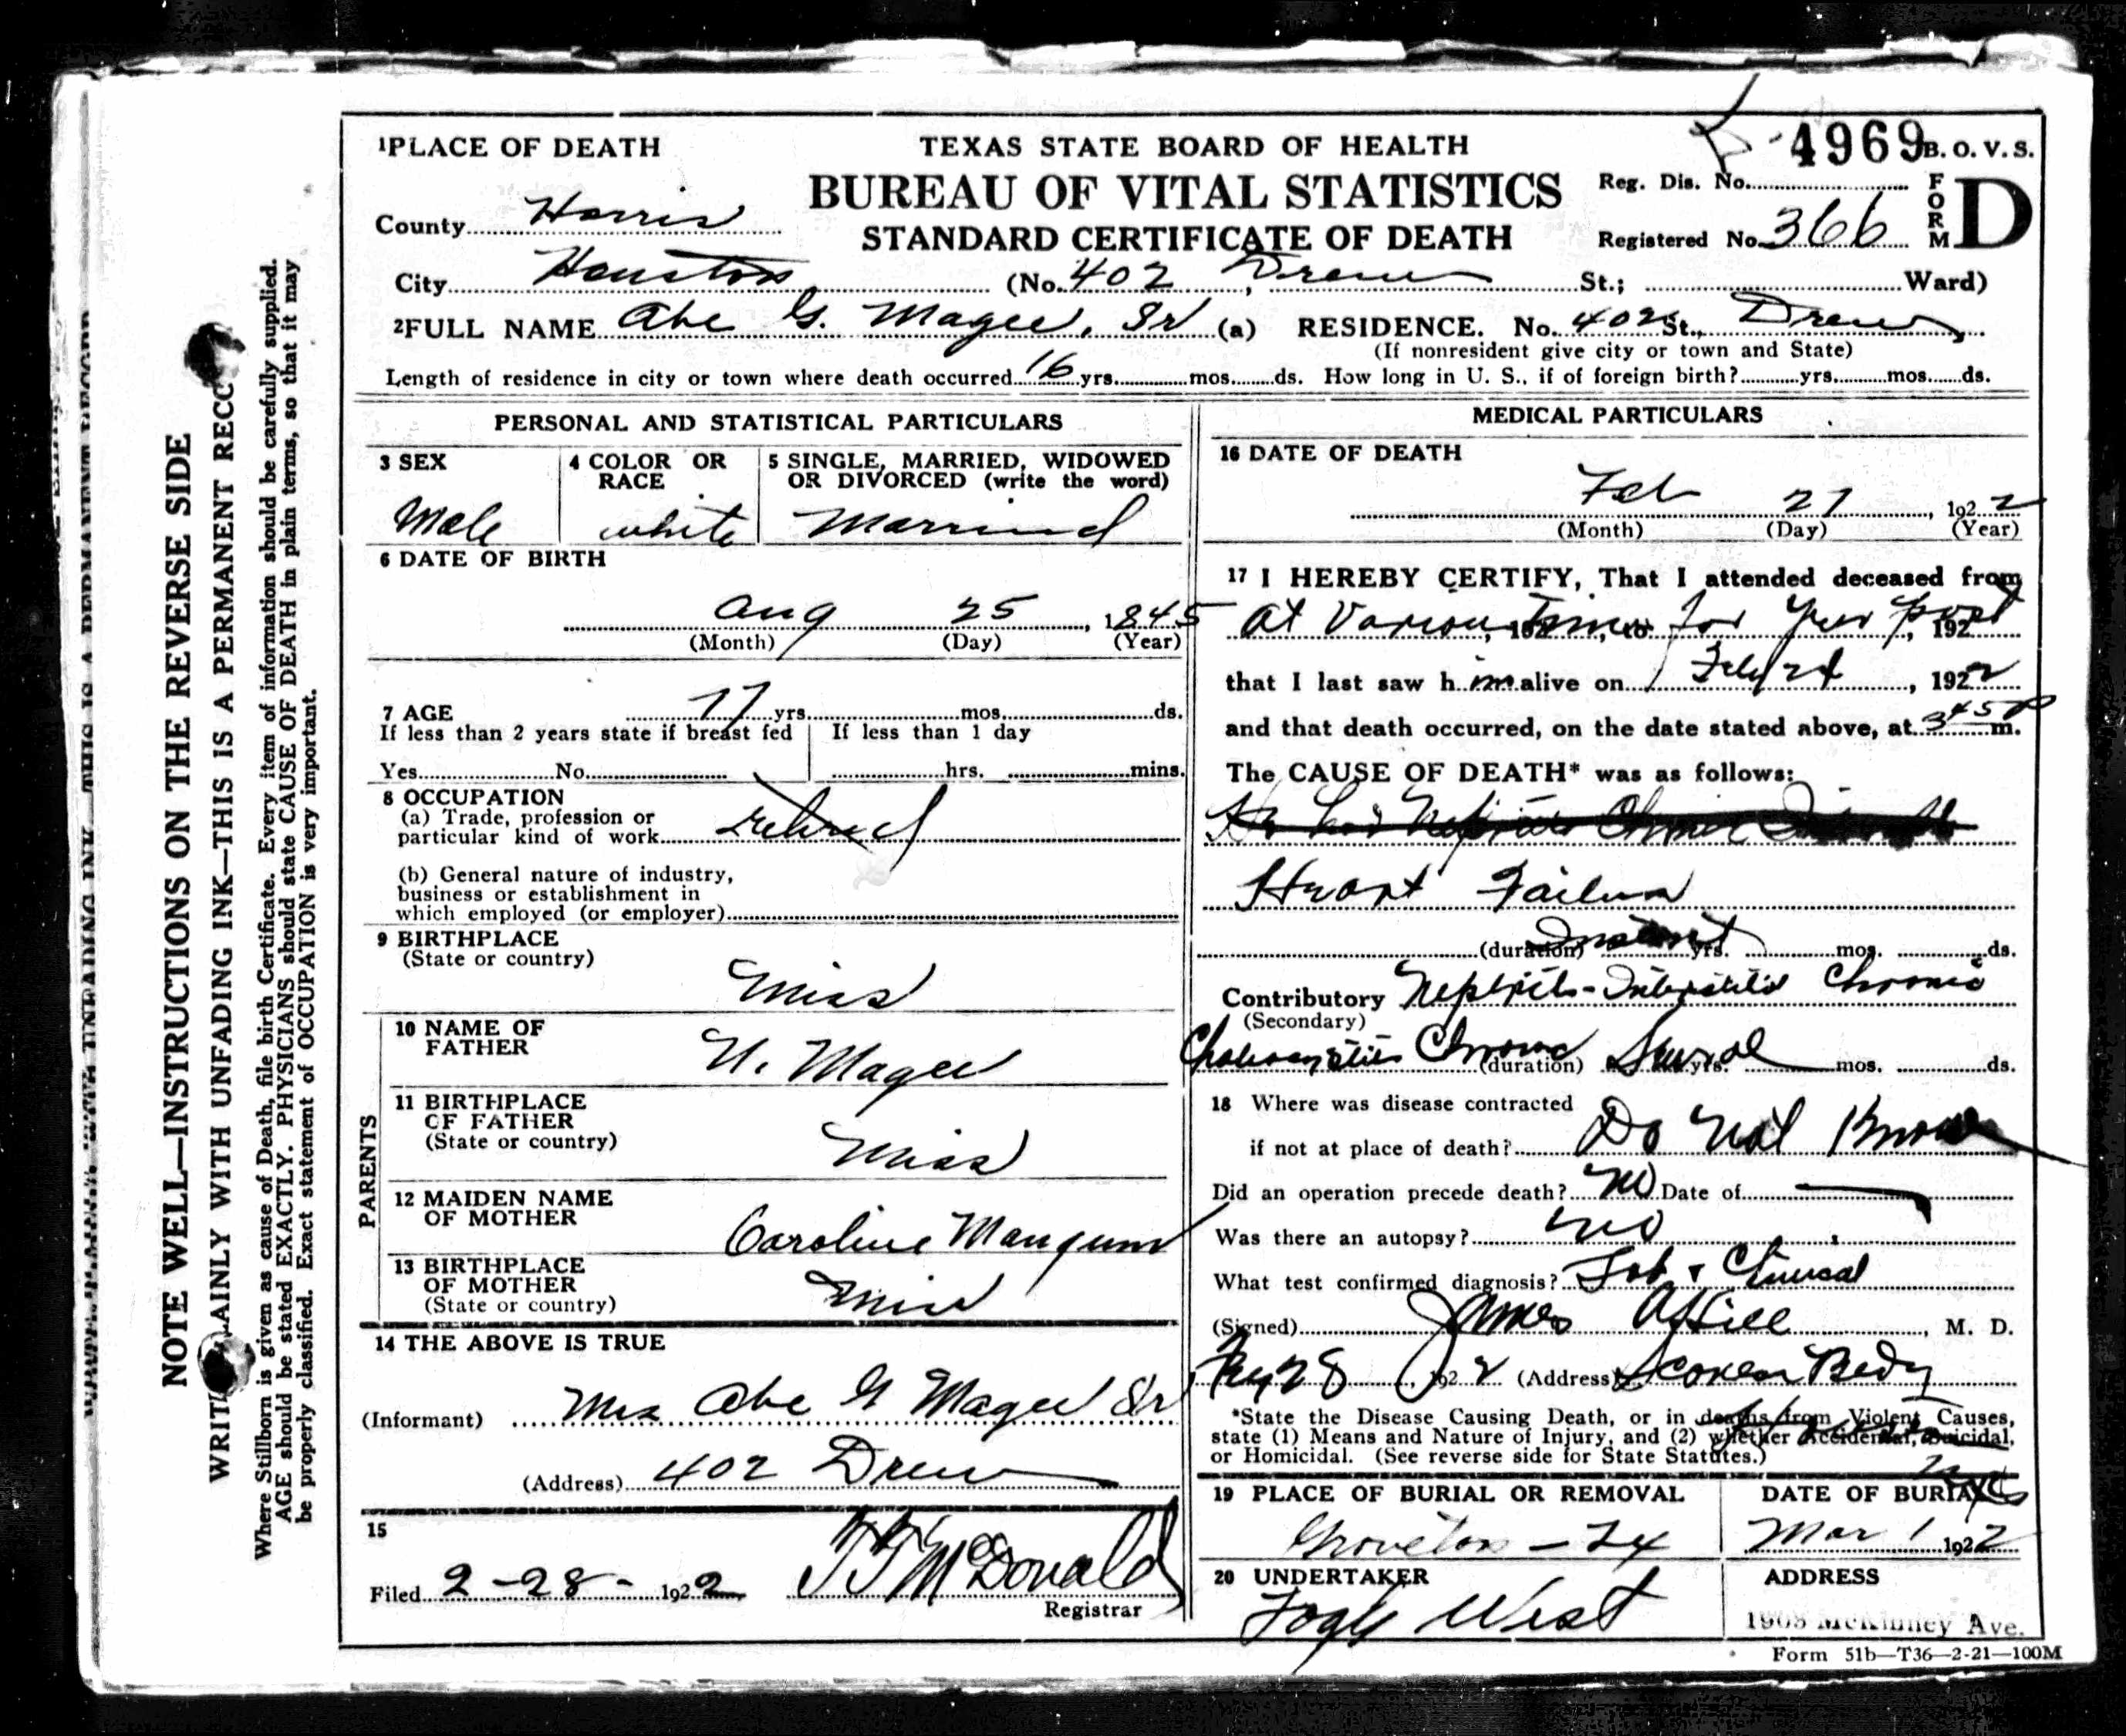 1PLACE OF DEATH
TEXAS STATE BOARD OF HEALTH
4969 B. O. V. S.
BUREAU OF VITAL STATISTICS
Reg. Dis. No.
FORM D
County Harris
STANDARD CERTIFICATE OF DEATH
Registered No. 366
City Houston (No. 402, Drew St.; Ward)
2FULL NAME Abe G. Magee, Sr (a) RESIDENCE. No. 402 St., Drew
(If nonresident give city or town and State)
Length of residence in city or town where death occurred 16 yrs. mos. ds. How long in U. S., if of foreign birth? yrs. mos. ds.
PERSONAL AND STATISTICAL PARTICULARS
3 SEX
4 COLOR OR RACE
5 SINGLE, MARRIED, WIDOWED
OR DIVORCED (write the word)
Male white Married
6 DATE OF BIRTH
Aug 25, 1845
(Month) (Day) (Year)
7 AGE 77 yrs. mos. ds.
If less than 2 years state if breast fed If less than 1 day
Yes No hrs. mins.
8 OCCUPATION
(a) Trade, profession or
particular kind of work retired
(b) General nature of industry,
business or establishment in
which employed (or employer)
9 BIRTHPLACE
(State or country)
Miss
PARENTS
10 NAME OF
FATHER
Magee
11 BIRTHPLACE
OF FATHER
(State or country)
Miss
12 MAIDEN NAME
OF MOTHER
Caroline Mangum
13 BIRTHPLACE
OF MOTHER
(State or country)
Miss
14 THE ABOVE IS TRUE
(Informant) Mrs Abe G Magee Sr
(Address) 402 Drew
15
Filed 2-28- 1922
McDonald
Registrar
MEDICAL PARTICULARS
16 DATE OF DEATH
Feb 27, 1922
(Month) (Day) (Year)
17 I HEREBY CERTIFY, That I attended deceased from
at Various times, 192 , to for year past, 192
that I last saw him alive on Feby 24, 1922
and that death occurred, on the date stated above, at 3 45 P m.
The CAUSE OF DEATH* was as follows:
Heart Failure
(duration) Instant yrs. mos. ds.
Contributory Nephritis-Interstitial Chronic
(Secondary)
Cholecystitis Chronic (duration) Several yrs. mos. ds.
18 Where was disease contracted
if not at place of death? Do Not Know
Did an operation precede death? No Date of
Was there an autopsy? No
What test confirmed diagnosis? Lab & Clinical
(Signed) James M. D.
28 1922 (Address) Scanlan Bldg
*State the Disease Causing Death, or in deaths from Violent Causes,
state (1) Means and Nature of Injury, and (2) whether Accidental, Suicidal,
or Homicidal. (See reverse side for State Statutes.)
19 PLACE OF BURIAL OR REMOVAL
DATE OF BURIAL
Groveton - Tx
Mar 1 1922
20 UNDERTAKER
ADDRESS
Fogle West
1908 McKinney Ave.
Form 51b—T36—2-21—100M
NOTE WELL—INSTRUCTIONS ON THE REVERSE SIDE
WRITE PLAINLY WITH UNFADING INK—THIS IS A PERMANENT RECO
Where Stillborn is given as cause of Death, file birth Certificate. Every item of information should be carefully supplied.
AGE should be stated EXACTLY. PHYSICIANS should state CAUSE OF DEATH in plain terms, so that it may
be properly classified. Exact statement of OCCUPATION is very important.